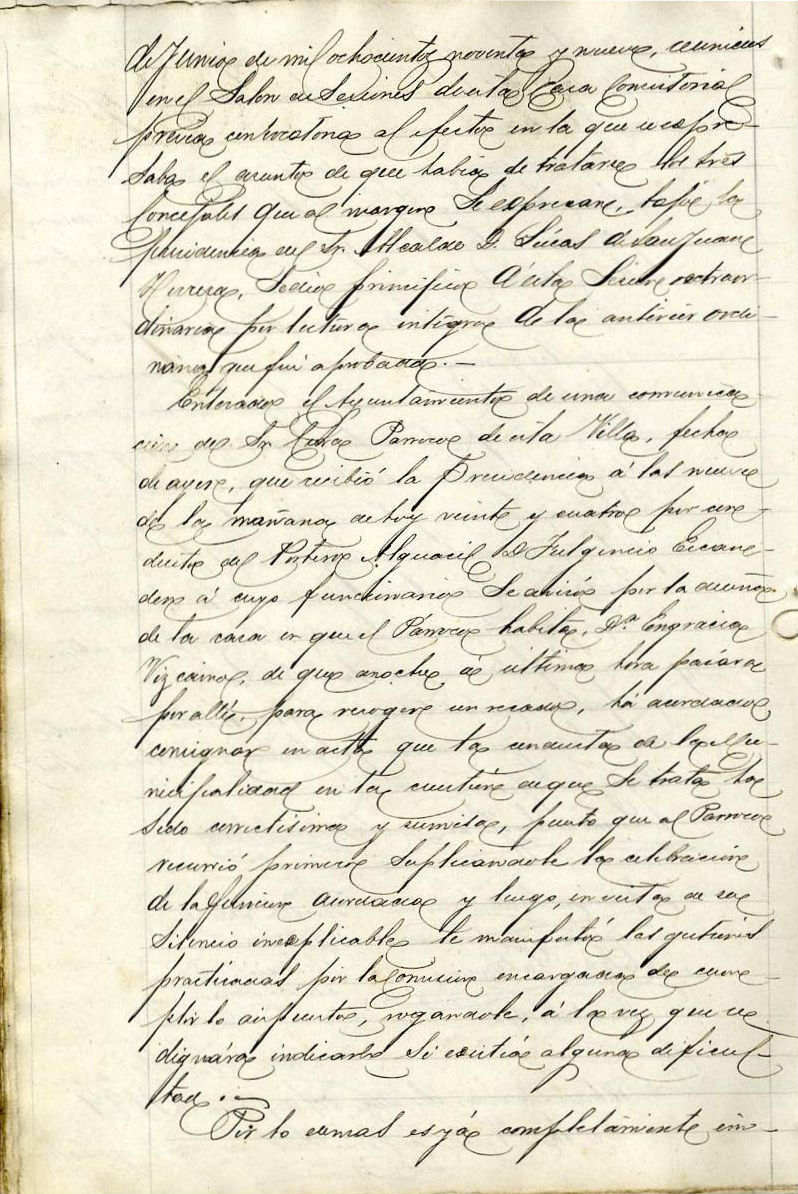 de Junio de mil ochocientos noventa y nueve, reunidos
en el Salon de Sesiones de esta Casa Consistorial
prévia convocatoria al efecto en la que se expre-
saba el asunto de que habia de tratarse los tres
Concejales que al margen se expresan, bajo la
presidencia del Sr. Alcalde D. Lúcas de San Juan
Herrera, se dió principio á esta Sesion extraor-
dinaria por lectura integra de la anterior ordi-
naria que fué aprobada.—
Enterado el Ayuntamiento de una comunica-
cion del Sr. Cura Párroco de esta Villa, fecha
de ayer, que recibió la Presidencia á las nueve
de la mañana de hoy veinte y cuatro por con-
ducto del Portero Alguacil D. Fulgencio Escan-
dero á cuyo funcionario se avisó por la dueña
de la casa en que el Párroco habita, Dª Engracia
Vizcaino, de que anoche á última hora pasára
por allí, para recoger un recado, há acordado
consignar en acta que la conducta de la Mu-
nicipalidad en la cuestion de que se trata ha
sido correctisima y sumisa, puesto que al Párroco
recurrió primero suplicandole la celebracion
de la funcion acordada y luego, en vista de su
silencio inexplicable le manifestó las gestiones
practicadas por la Comision encargada de cum-
plir lo dispuesto, rogandole, á la vez que se
dignára indicarle si existia alguna dificul-
tad.—
Por lo demas es yá completamente im-